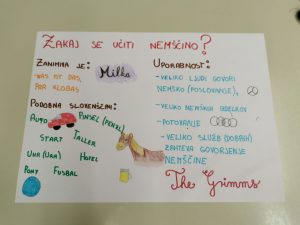 ZAKAJ SE UČITI NEMŠČINO?
ZANIMIVA JE:
-WAS IST DAS,
PAR KLOBAS
Milka
PODOBNA SLOVENŠČINI:
AUTO PINSEL (PENZL)
START TALLER
UHR (URA) HOTEL
PONY FUSBAL
UPORABNOST:
-VELIKO LJUDI GOVORI
NEMŠKO (POSLOVANJE),
-VELIKO NEMŠKIH IZDELKOV
-POTOVANJE
-VELIKO SLUŽB (DOBRIH)
ZAHTEVA GOVORJENJE
NEMŠČINE
The Grimms